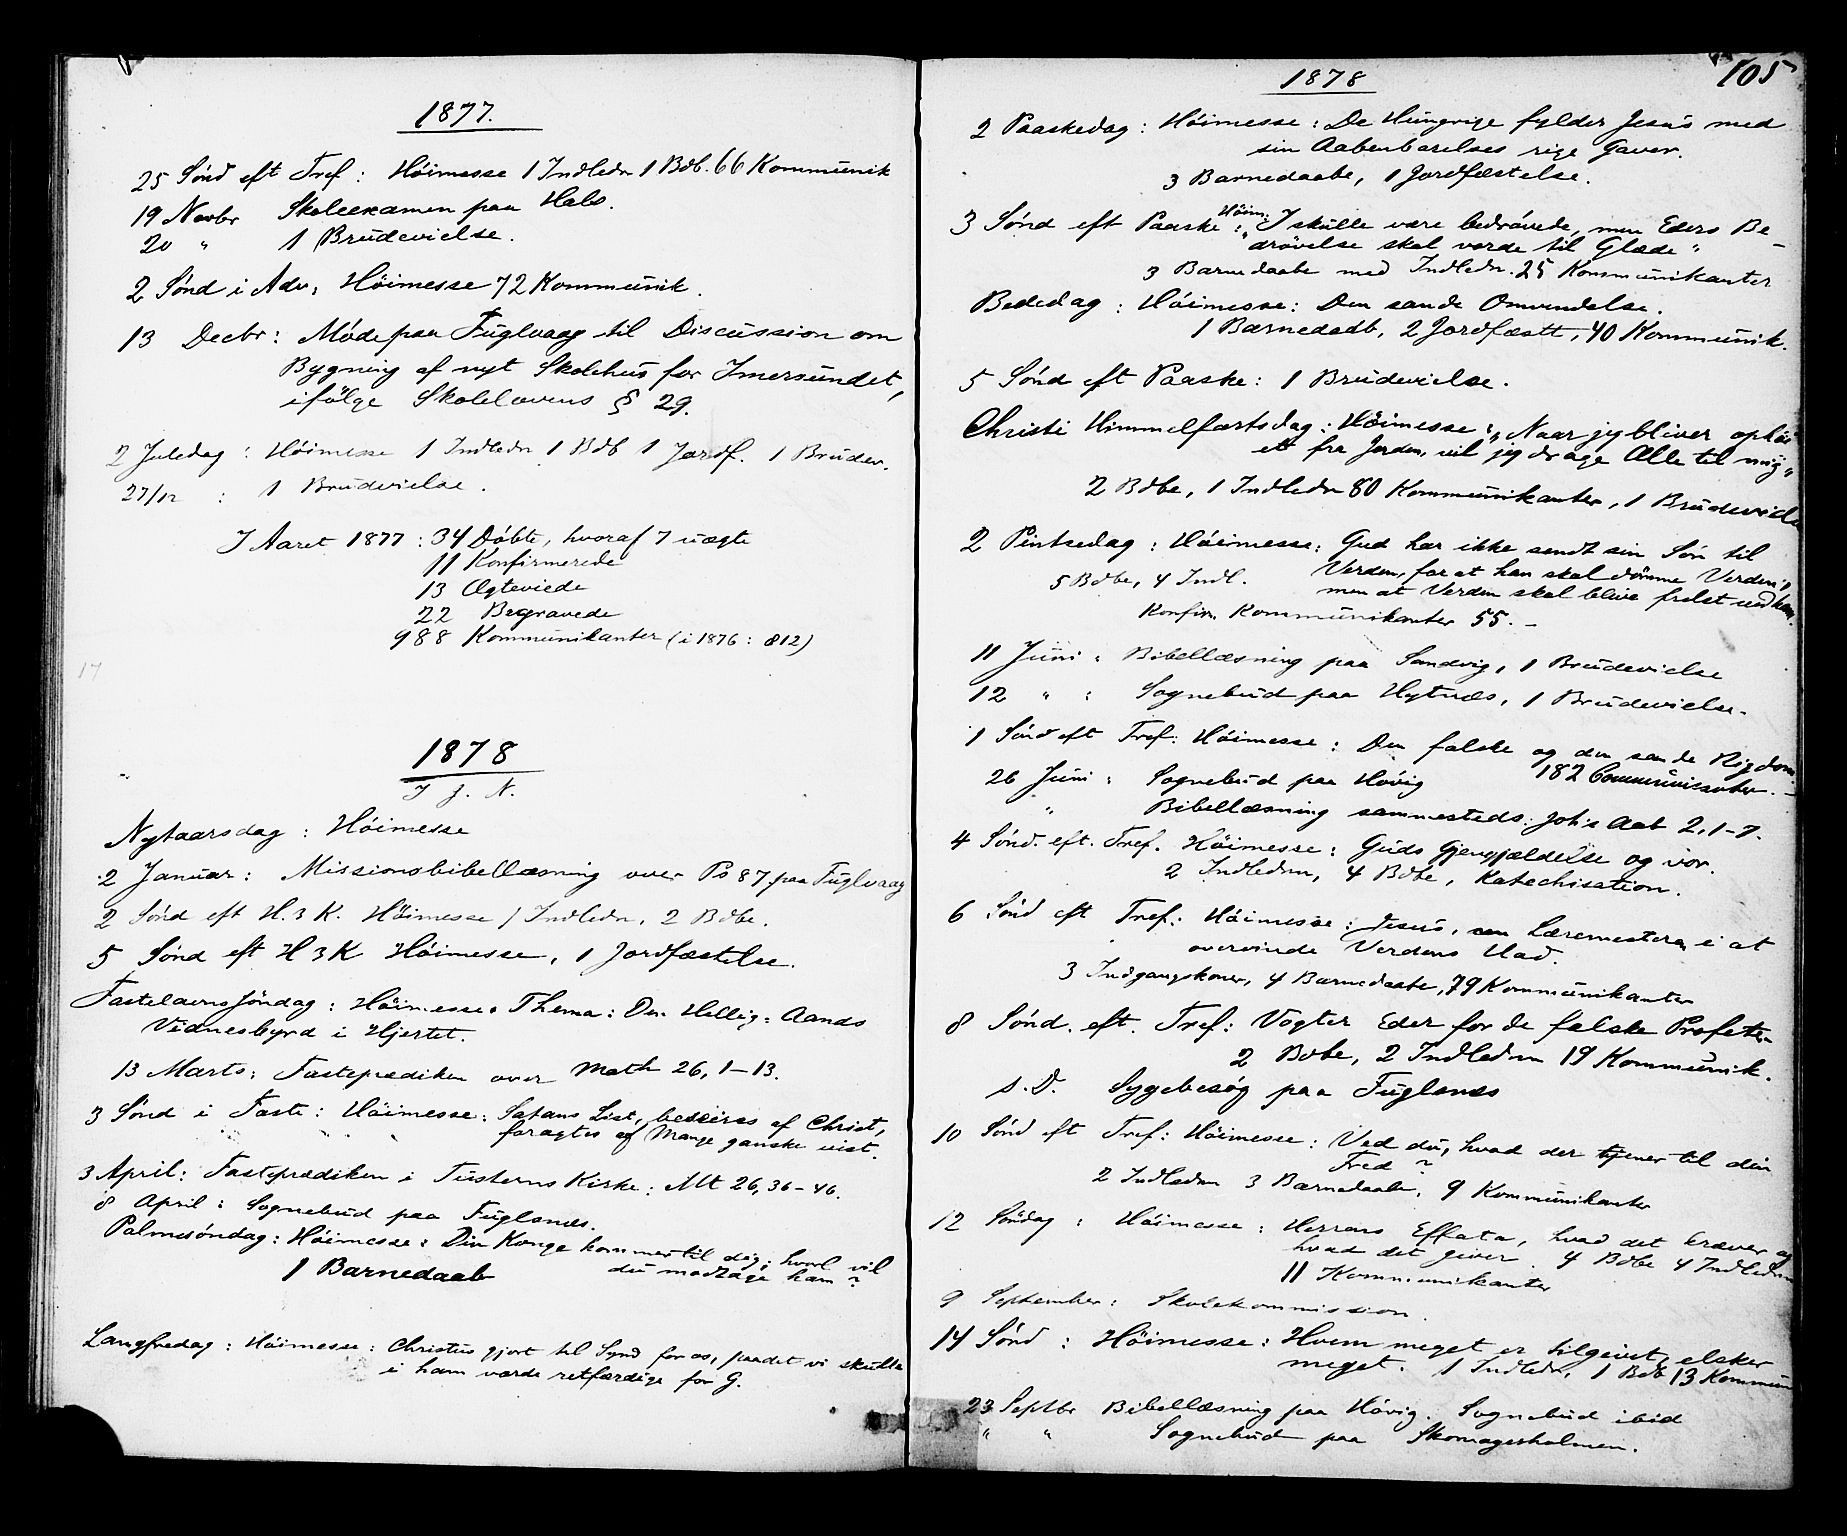 1877.
25 Sønd eft Tref: Høimesse 1 Indledn 1 Bdb. 66 Kommunik
19 Novbr Skoleexamen paa Hals.
20 " 1 Brudevielse.
2 Sønd i Adv: Høimesse 72 Kommunik.
13 Decbr: Møde paa Fuglvaag til Discussion om
Bygning af nyt Skolehus for Imersundet,
ifølge Skolelovens § 29.
2 Juledag: Høimesse 1 Indledn 1 Bdb 1 Jordf. 1 Brudev.
27/12 : 1 Brudevielse.
I Aaret 1877: 34 Døbte, hvoraf 7 uægte
11 Konfirmerede
13 Ægteviede
22 Begravede
988 Kommunikanter (i 1876: 812)
17
1878
I J. N.
Nytaarsdag: Høimesse
2 Januar: Missionsbibellæsning over Ps 87. paa Fuglvaag
2 Sønd eft H. 3 K. Høimesse 1 Indledn, 2 Bdbe.
5 Sønd eft H 3 K Høimesse, 1 Jordfæstelse.
Fastelavnssöndag: Høimesse. Thema: Den Hellig-Aands
Vidnesbyrd i Hjertet.
13 Marts: Fasteprædiken over Math 26, 1-13.
3 Sønd i Faste: Høimesse: Satans List, beseires af Christ,
foragtes af Mange ganske vist.
3 April: Fasteprædiken i Tusterns Kirke: Mt 26, 36-46.
8 April: Sognebud paa Fuglsnæs.
Palmesøndag: Høimesse: Din Konge kommer til dig; hvorl vil
du modtage ham?
1 Barnedaab
Langfredag: Høimesse: Christus gjort til Synd for os, paadet vi skulle
i ham vorde retfærdige for G.
105
1878
2 Paaskedag: Høimesse: De Hungrige fylder Jesus med
sin Aabenbarelses rige Gaver.
3 Barnedaabe, 1 Jordfæstelse.
3 Sønd eft Paaske: Høim: "I skulle være bedrøvede, men Eders Be-
drøvelse skal vorde til Glæde"
3 Barnedaabe med Indledn. 25 Kommunikanter
Bededag: Høimesse: Den sande Omvendelse.
1 Barnedaab, 2 Jordfæstt, 40 Kommunik.
5 Sønd eft Paaske: 1 Brudevielse.
Christi Himmelfartsdag: Høimesse: "Naar jeg bliver ophöi
et fra Jorden, vil jeg drage Alle til mig"
2 Bdbe, 1 Indledn 80 Kommunikanter, 1 Brudevielse
2 Pintsedag: Høimesse: Gud har ikke sendt sin Søn til
Verden, for at han skal dømme Verden,
5 Bdbe, 4 Indl. men at Verden skal blive frelst ved ham.
Konfirm. Kommunikanter 55. -
11 Juni: Bibellæsning paa Sandvig, 1 Brudevielse
12 " : Sognebud paa Hytnæs, 1 Brudevielse.
1 Sønd eft Tref: Høimesse: Den falske og den sande Rigdom
182 Communicanter. -
26 Juni: Sognebud paa Høvig
" Bibellæsning sammesteds: Joh's Aab 2, 1-7.
4 Sønd. eft. Tref. Høimesse: Guds Gjengjældelse og vor.
2 Indledn, 4 Bdbe, Katechisation.
6 Sønd eft Tref: Høimesse: Jesus, som Læremesteren i at
overvinde Verdens Had.
3 Indgangskoner, 4 Barnedaabe, 79 Kommunikanter
8 Sønd. eft. Tref: Vogter Eder for de falske Profeter
2 Bdbe, 2 Indledn 19 Kommunik.
s. D. Sygebesøg paa Fuglsnæs
10 Sønd eft Tref: Høimesse: Ved du, hvad der tjener til din
Fred?
2 Indledn 3 Barnedaabe, 9 Kommunikanter
12 Søndag: Høimesse: Herrens Effata, hvad det kræver og
hvad det giver. 4 Bdbe 4 Indledn
11 Kommunikanter
9 September: Skolekommission.
14 Sønd: Høimesse: Hvem meget er tilgivet, elsker
meget. 1 Indledn, 1 Bdb 13 Kommun
23 Septbr Bibellæsning paa Høvig. Sognebud ibid
" " Sognebud paa Skomagerholmen.